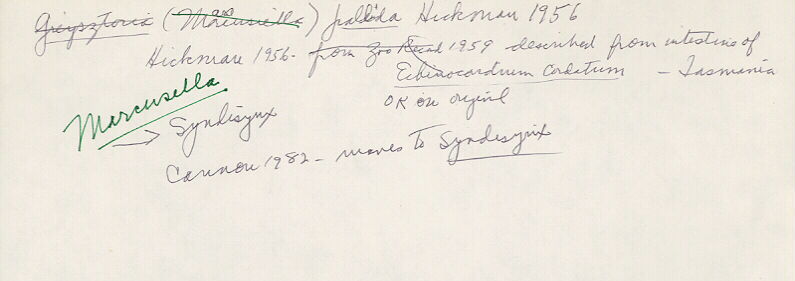 Greysztoria (Marcusiella) pallida Hickman 1956
Hickman 1956 - from Zoo Record 1959 described from intestine of
Echinocardium cordatum - Tasmania
OK on original
Marcusella
→ Syndisyrix
Cannon 1982 - moves to Syndesyrix